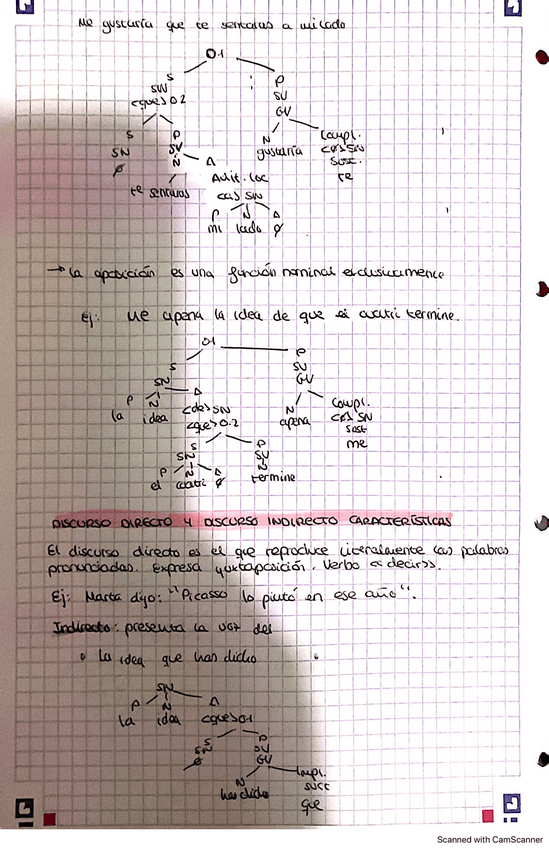 Me gustaría que te sentaras a mi lado
O.1
S P
SN SV
<que> O.2 GV
S P N Compl.
SN SV gustaría <a> SN
Ø N A Sust.
te sentaras Adit. loc te
<a> SN
P N A
mi lado Ø
→ la aposición es una función nominal exclusivamente
Ej: Me apena la idea de que el cuatri termine.
O.1
S P
SN SV
P N A GV
la idea <de> SN N Compl.
<que> O.2 apena <a> SN
S P Sust
SN SV me
P N A N
el cuatri Ø termine
DISCURSO DIRECTO Y DISCURSO INDIRECTO CARACTERÍSTICAS
El discurso directo es el que reproduce literalmente las palabras
pronunciadas. Expresa yuxtaposición. Verbo «decir».
Ej: Marta dijo: "Picasso lo pintó en ese año".
Indirecto: presenta la voz del
• La idea que has dicho
SN
P N A
la idea <que> O.1
S P
SN SV
Ø GV
N Impl.
has dicho sust
que
Scanned with CamScanner